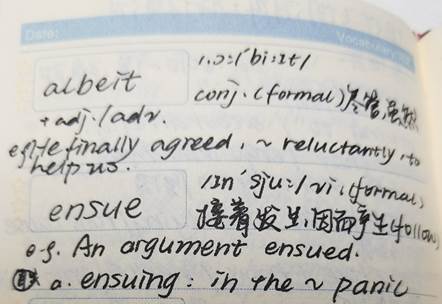 Date: Vocabulary
albeit /ˌɔːlˈbiːɪt/
conj. (formal) 尽管,虽然
+ adj. / adv.
e.g. He finally agreed, ~ reluctantly, to
help us.
ensue /ɪnˈsjuː/ vi. (formal)
接着发生,因而产生 (follow)
e.g. An argument ensued.
a. ensuing: in the ~ panic